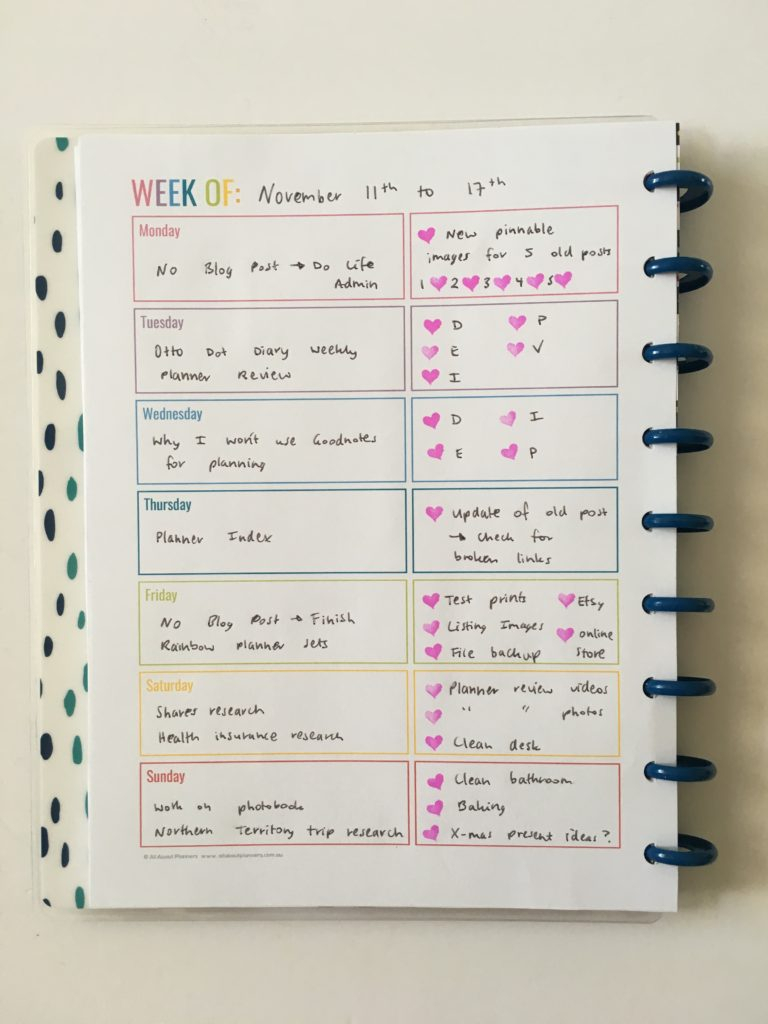 WEEK OF: November 11th to 17th
Monday
No Blog Post → Do Life
Admin
New pinnable
images for 5 old posts
1 2 3 4 5
Tuesday
Otto Dot Diary weekly
planner Review
D P
E V
I
Wednesday
Why I won't use Goodnotes
for planning
D I
E P
Thursday
Planner Index
update of old post
→ check for
broken links
Friday
No Blog Post → Finish
Rainbow planner sets
Test prints Etsy
Listing Images online
File backup store
Saturday
Shares research
Health insurance research
Planner review videos
" " photos
Clean desk
Sunday
Work on photobook
Northern Territory trip research
Clean bathroom
Baking
X-mas present ideas?
© All About Planners www.allaboutplanners.com.au